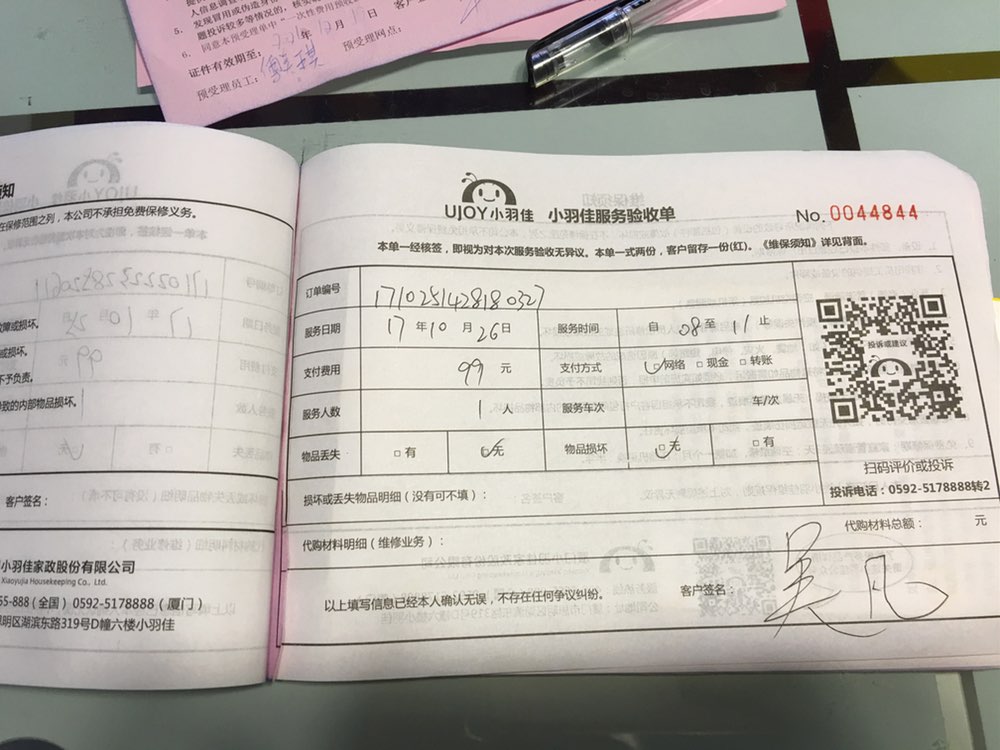 人信息调查
发现冒用或伪造身
5. 题投诉较多等情况的，核实
6. 同意本预受理单中“一次性费用预收
证件有效期至： 年12月17日
预受理网点：
预受理员工：
知
在保修范围之列，本公司不承担免费保修义务。
故障或损坏。
或损坏。
不予负责。
导致的内部物品损坏。
客户签名：
小羽佳家政股份有限公司
Xiaoyujia Housekeeping Co., Ltd.
55-888（全国） 0592-5178888（厦门）
明区湖滨东路319号D幢六楼小羽佳
UJOY小羽佳 小羽佳服务验收单
No. 0044844
本单一经核签，即视为对本次服务验收无异议。本单一式两份，客户留存一份(红)。《维保须知》详见背面。
订单编号 1710251428180327
服务日期 17 年 10 月 26 日 服务时间 自 08 至 11 止
支付费用 99 元 支付方式 网络 □ 现金 □ 转账
服务人数 1 人 服务车次 车/次
物品丢失 □ 有 □ 无 物品损坏 □ 无 □ 有
投诉或建议
扫码评价或投诉
投诉电话：0592-5178888转2
损坏或丢失物品明细（没有可不填）：
代购材料明细（维修业务）：
代购材料总额： 元
以上填写信息已经本人确认无误，不存在任何争议纠纷。
客户签名： 吴凡